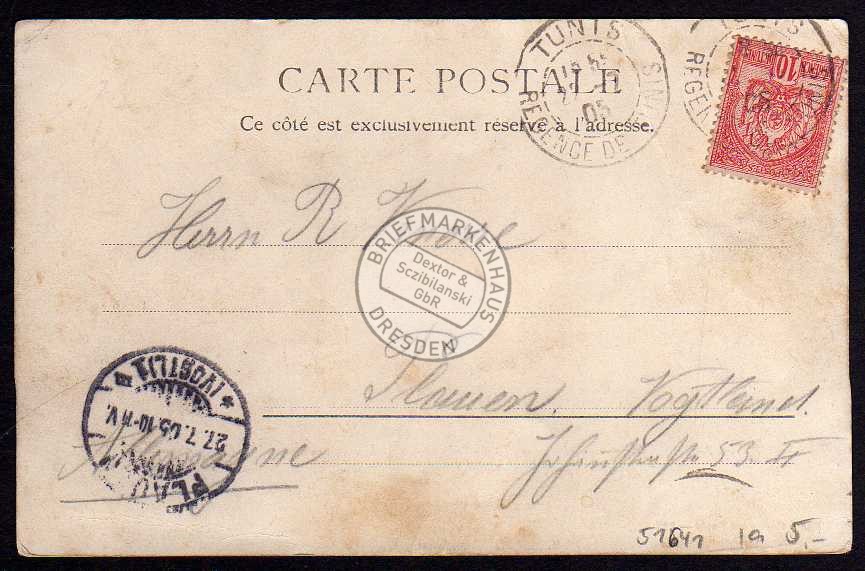 CARTE POSTALE
Ce côté est exclusivement réservé à l'adresse.
TUNIS
05
REGENCE DE TUNIS
TUNIS
REGEN
10
Herrn R
BRIEFMARKENHAUS
Dextor &
Sczibilanski
GbR
DRESDEN
Plauen. Vogtland.
Allemagne
53 II
PLAU
(VOGTL) 1
27.7.05.10-11V.
51641 1a 5,-